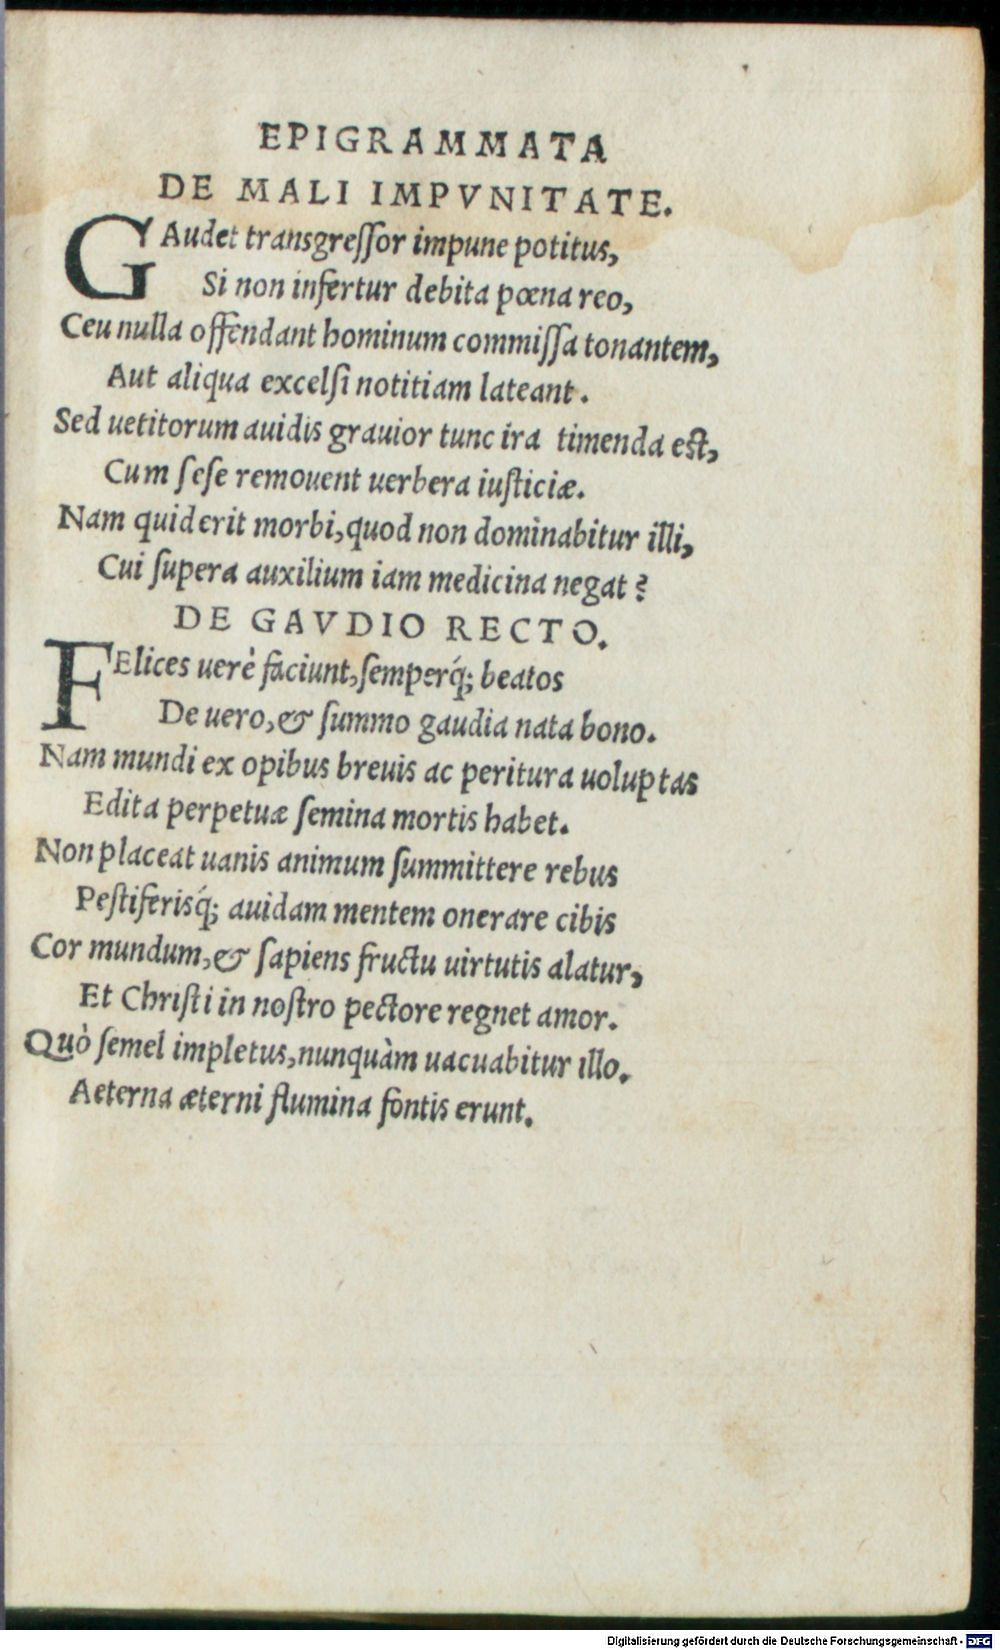 EPIGRAMMATA
DE MALI IMPVNITATE.
GAudet transgreſſor impune potitus,
Si non infertur debita pœna reo,
Ceu nulla offendant hominum commiſſa tonantem,
Aut aliqua excelſi notitiam lateant.
Sed uetitorum auidis grauior tunc ira timenda est,
Cum ſeſe remouent uerbera iuſticiæ.
Nam quid erit morbi, quod non dominabitur illi,
Cui ſupera auxilium iam medicina negat?
DE GAVDIO RECTO.
FElices uerè faciunt, ſemperq́; beatos
De uero, & ſummo gaudia nata bono.
Nam mundi ex opibus breuis ac peritura uoluptas
Edita perpetuæ ſemina mortis habet.
Non placeat uanis animum ſummittere rebus
Peſtiferisq́; auidam mentem onerare cibis
Cor mundum, & ſapiens fructu uirtutis alatur,
Et Chriſti in noſtro pectore regnet amor.
Quò ſemel impletus, nunquàm uacuabitur illo.
Aeterna æterni flumina fontis erunt.
Digitalisierung gefördert durch die Deutsche Forschungsgemeinschaft - DFG